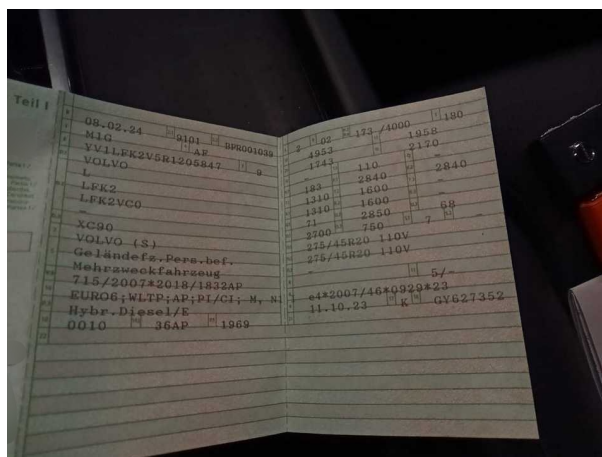 Teil I
08.02.24 9101 BPR001039
M1G AF
YV1LFK2V5R1205847 9
VOLVO
L
LFK2
LFK2VC0
–
XC90
VOLVO (S)
Geländefz.Pers.bef.
Mehrzweckfahrzeug
715/2007*2018/1832AP
EURO6;WLTP;AP;PI/CI; M, N1
Hybr.Diesel/E
0010 36AP 1969
2 02 173 /4000 180
4953 1958
1743 2170
– 110 –
193 2840 2840
1310 1600 –
1310 1600 –
71 2850 68
2700 750 7 –
275/45R20 110V
275/45R20 110V
– 5/–
e4*2007/46*0929*23
11.10.23 K GY627352